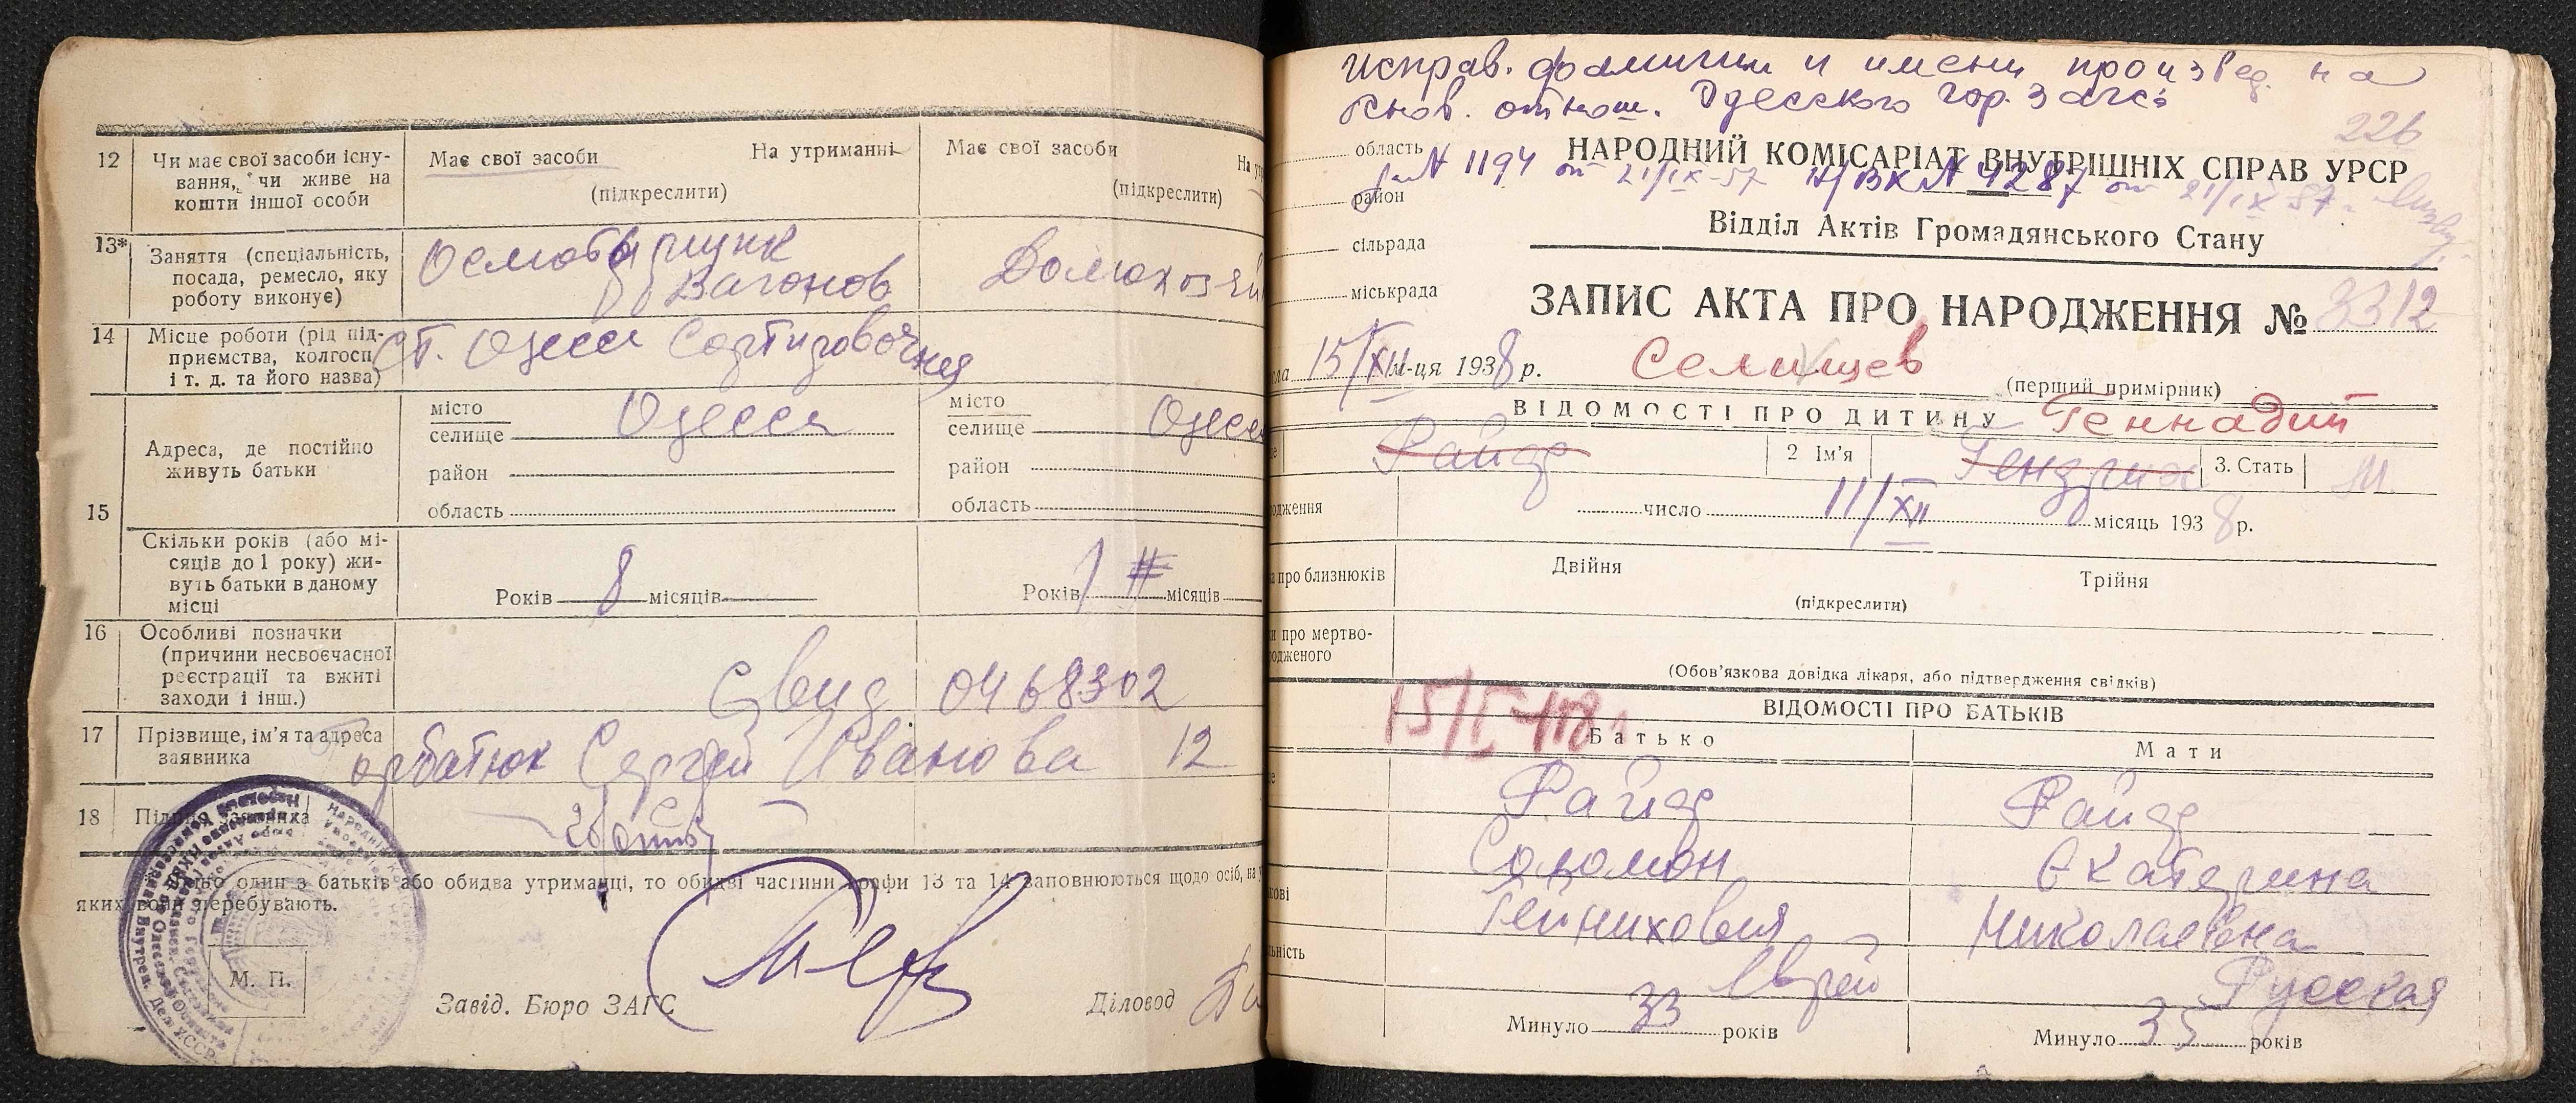 12
Чи має свої засоби існу-
вання, чи живе на
кошти іншої особи
Має свої засоби
На утриманні
(підкреслити)
Має свої засоби
(підкреслити)
13*
Заняття (спеціальність,
посада, ремесло, яку
роботу виконує)
Вагонов
14
Місце роботи (рід під-
приємства, колгосп
і т. д. та його назва)
Ст. Одесса Сортировочная
15
Адреса, де постійно
живуть батьки
місто
селище
Одесса
район
область
місто
селище
район
область
Скільки років (або мі-
сяців до 1 року) жи-
вуть батьки в даному
місці
Років 8 місяців
Років 1 місяців
16
Особливі позначки
(причини несвоєчасної
реєстрації та вжиті
заходи і інш.)
Свид 0468302
17
Прізвище, ім'я та адреса
заявника
Иванова 12
18
один з батьків або обидва утриманці, то обидві частини графи 13 та 14 заповнюються щодо осіб, на
яких вони перебувають.
М. П.
Завід. Бюро ЗАГС
Діловод
Исправ. фамилии и имени произвед. на
основ. отнош. Одесского гор. Загса
226
область
НАРОДНИЙ КОМІСАРІАТ ВНУТРІШНІХ СПРАВ УРСР
за N 1194 от 21/IX-57 N 4287 от 21/IX 57
район
Відділ Актів Громадянського Стану
сільрада
міськрада
ЗАПИС АКТА ПРО НАРОДЖЕННЯ № 3312
15/XII м-ця 1938 р.
Селищев
(перший примірник)
ВІДОМОСТІ ПРО ДИТИНУ
Геннадий
Райдр
2 Ім'я
Гендрих
3. Стать
М
число 11/XII місяць 1938 р.
про близнюків
Двійня
Трійня
(підкреслити)
про мертво-
(Обов'язкова довідка лікаря, або підтвердження свідків)
ВІДОМОСТІ ПРО БАТЬКІВ
Батько
Мати
Райдр
Райдр
Соломон
Екатерина
Николаевна
Еврей
Русская
Минуло 33 років
Минуло 35 років